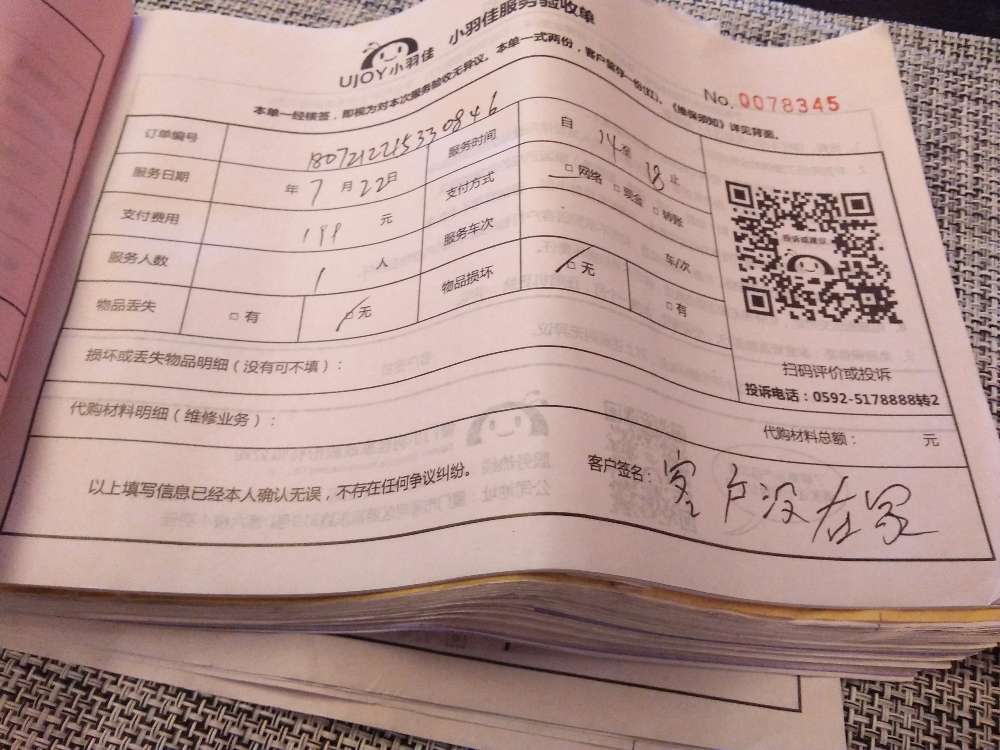 UJOY小羽佳 小羽佳服务验收单
本单一经核签，即视为对本次服务验收无异议。本单一式两份，客户留存一份(红)。《维保须知》详见背面。
No. 0078345
订单编号 180721221533 0846 服务时间 自 14 至 18 止
服务日期 年 7 月 22 日 支付方式 □ 网络 □ 现金 □ 转账
支付费用 199 元 服务车次 车/次
服务人数 1 人 物品损坏 □ 无 □ 有
物品丢失 □ 有 □ 无
投诉或建议
扫码评价或投诉
投诉电话：0592-5178888转2
损坏或丢失物品明细（没有可不填）：
代购材料明细（维修业务）： 代购材料总额： 元
以上填写信息已经本人确认无误，不存在任何争议纠纷。
客户签名： 客户没在家